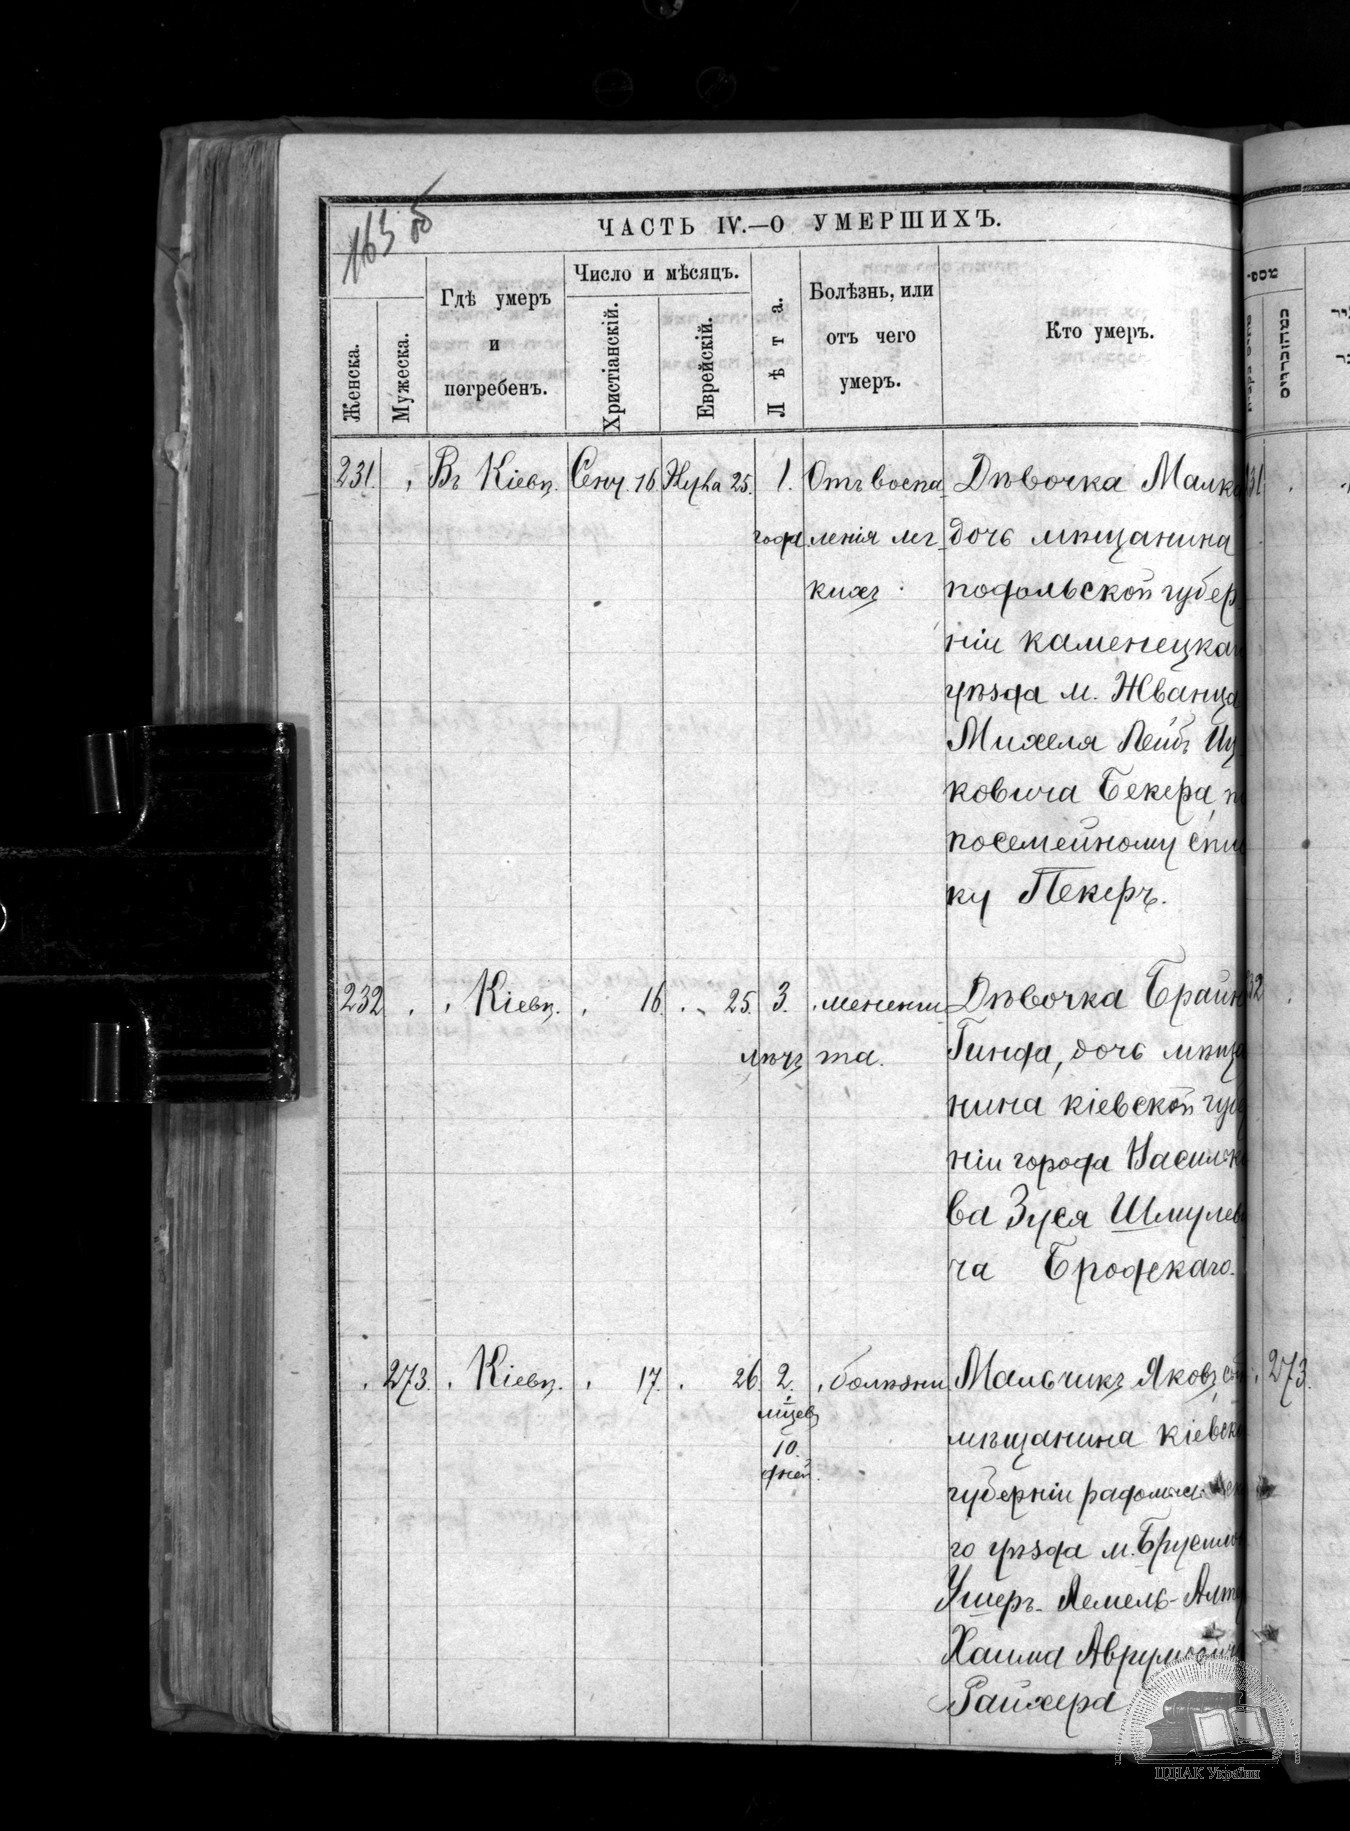 163 об
ЧАСТЬ IV.—О УМЕРШИХЪ.
Женска.
Мужеска.
Гдѣ умеръ
и
погребенъ.
Число и мѣсяцъ.
Христіанскій.
Еврейскій.
Лѣта.
Болѣзнь, или
отъ чего
умеръ.
Кто умеръ.
231. Въ Кіевѣ. 16 25. 1. Отъ воспа Дѣвочка Малка
года ленія лег дочь мѣщанина
кихъ подольской губер
ніи каменецкаго
уѣзда м. Жванца
Михеля Лейбъ Иц
ковича Бекера, по
посемейному спис
ку Пекеръ.
232 Кіевѣ. 16. 25. 3. менинги Дѣвочка Брайна
лѣтъ та. Гинда, дочь мѣща
нина кіевской губер
ніи города Василько
ва Зуся Шмулеви
ча Бродскаго.
273. Кіевѣ. 17. 26. 2. болѣзни Мальчикъ Яковъ, сынъ 273.
мѣщанина кіевской
мѣсяц
10. губерніи радомысльска
дней. го уѣзда м. Брусилова
Ушеръ-Лемель-Алтер
Хаима Аврумовича
Райхера
ЦДІАК України